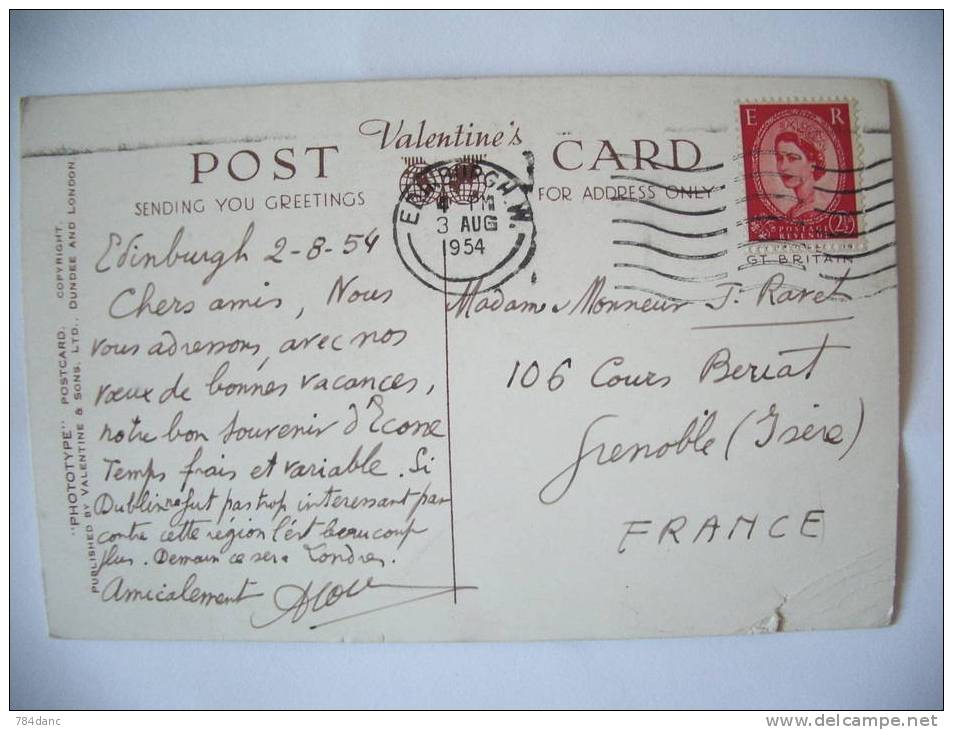 Valentine's
POST CARD
SENDING YOU GREETINGS
FOR ADDRESS ONLY
EDINBURGH.W.
4 PM
3 AUG
1954
E R
POSTAGE
REVENUE
2½
GT. BRITAIN
"PHOTOTYPE" POSTCARD. COPYRIGHT.
PUBLISHED BY VALENTINE & SONS. LTD., DUNDEE AND LONDON
Edinburgh 2-8-54
Chers amis, Nous
vous adressons, avec nos
vœux de bonnes vacances,
notre bon souvenir d'Ecosse
Temps frais et variable. Si
Dublin ne fut pas trop interessant par
contre cette région l'est beaucoup
plus. Demain ce sera Londres.
Amicalement
Madame Monsieur J. Ravet
106 Cours Beriat
Grenoble (Isère)
FRANCE
784danc
www.delcampe.net